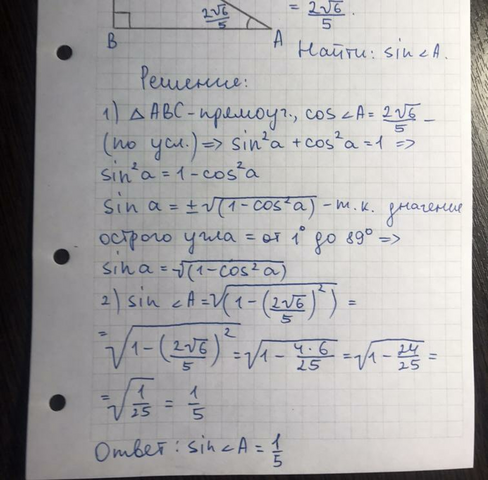 2√6/5
= 2√6/5.
B
A
Найти: sin∠A.
Решение:
1) △ABC-прямоуг., cos∠A= 2√6/5 –
(по усл.) => sin²a + cos²a = 1 =>
sin²a = 1 - cos²a
sin a = ±√(1-cos²a) - т.к. значение
острого угла = от 1° до 89° =>
sin a = √(1-cos²a)
2) sin ∠A = √(1-(2√6/5)²) =
= √1-(2√6/5)² = √1- 4·6/25 = √1- 24/25 =
= √1/25 = 1/5
Ответ: sin∠A = 1/5